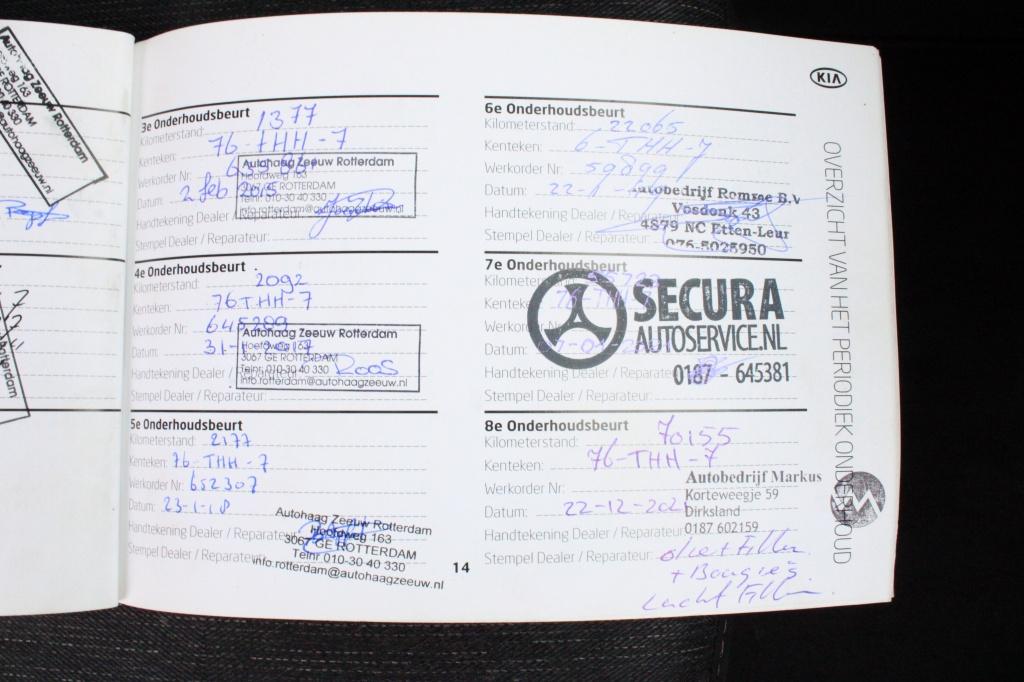 Autohaag Zeeuw Rotterdam
3e Onderhoudsbeurt
Kilometerstand: 1377
Kenteken: 76-THH-7
Werkorder Nr:
Datum: 2 feb
Handtekening Dealer / Reparateur:
Stempel Dealer / Reparateur:
Autohaag Zeeuw Rotterdam
Hoofdweg 163
3067 GE ROTTERDAM
Telnr. 010-30 40 330
info.rotterdam@autohaagzeeuw.nl
4e Onderhoudsbeurt
Kilometerstand: 2092
Kenteken: 76THH-7
Werkorder Nr: 645289
Datum: 31-1-2017
Handtekening Dealer / Reparateur:
Stempel Dealer / Reparateur:
Autohaag Zeeuw Rotterdam
Hoofdweg 163
3067 GE ROTTERDAM
Telnr. 010-30 40 330
info.rotterdam@autohaagzeeuw.nl
Roos
5e Onderhoudsbeurt
Kilometerstand: 2177
Kenteken: 76-THH-7
Werkorder Nr: 652307
Datum: 23-1-18
Handtekening Dealer / Reparateur:
Stempel Dealer / Reparateur:
Autohaag Zeeuw Rotterdam
Hoofdweg 163
3067 GE ROTTERDAM
Telnr 010-30 40 330
info.rotterdam@autohaagzeeuw.nl
14
KIA
6e Onderhoudsbeurt
Kilometerstand: 22065
Kenteken: 6-THH-7
Werkorder Nr: 59899
Datum: 22-1-
Handtekening Dealer / Reparateur:
Stempel Dealer / Reparateur:
Autobedrijf Romsee B.V
Vosdonk 43
4879 NC Etten-Leur
076-5025950
7e Onderhoudsbeurt
Kilometerstand:
Kenteken:
Werkorder Nr:
Datum:
Handtekening Dealer / Reparateur:
Stempel Dealer / Reparateur:
SECURA
AUTOSERVICE.NL
0187 - 645381
8e Onderhoudsbeurt
Kilometerstand: 70155
Kenteken: 76-THH-7
Werkorder Nr:
Datum: 22-12-202
Handtekening Dealer / Reparateur:
Stempel Dealer / Reparateur:
Autobedrijf Markus
Korteweegje 59
Dirksland
0187 602159
olie + Filter
+ Bougie's
Lucht Filter
OVERZICHT VAN HET PERIODIEK ONDERHOUD